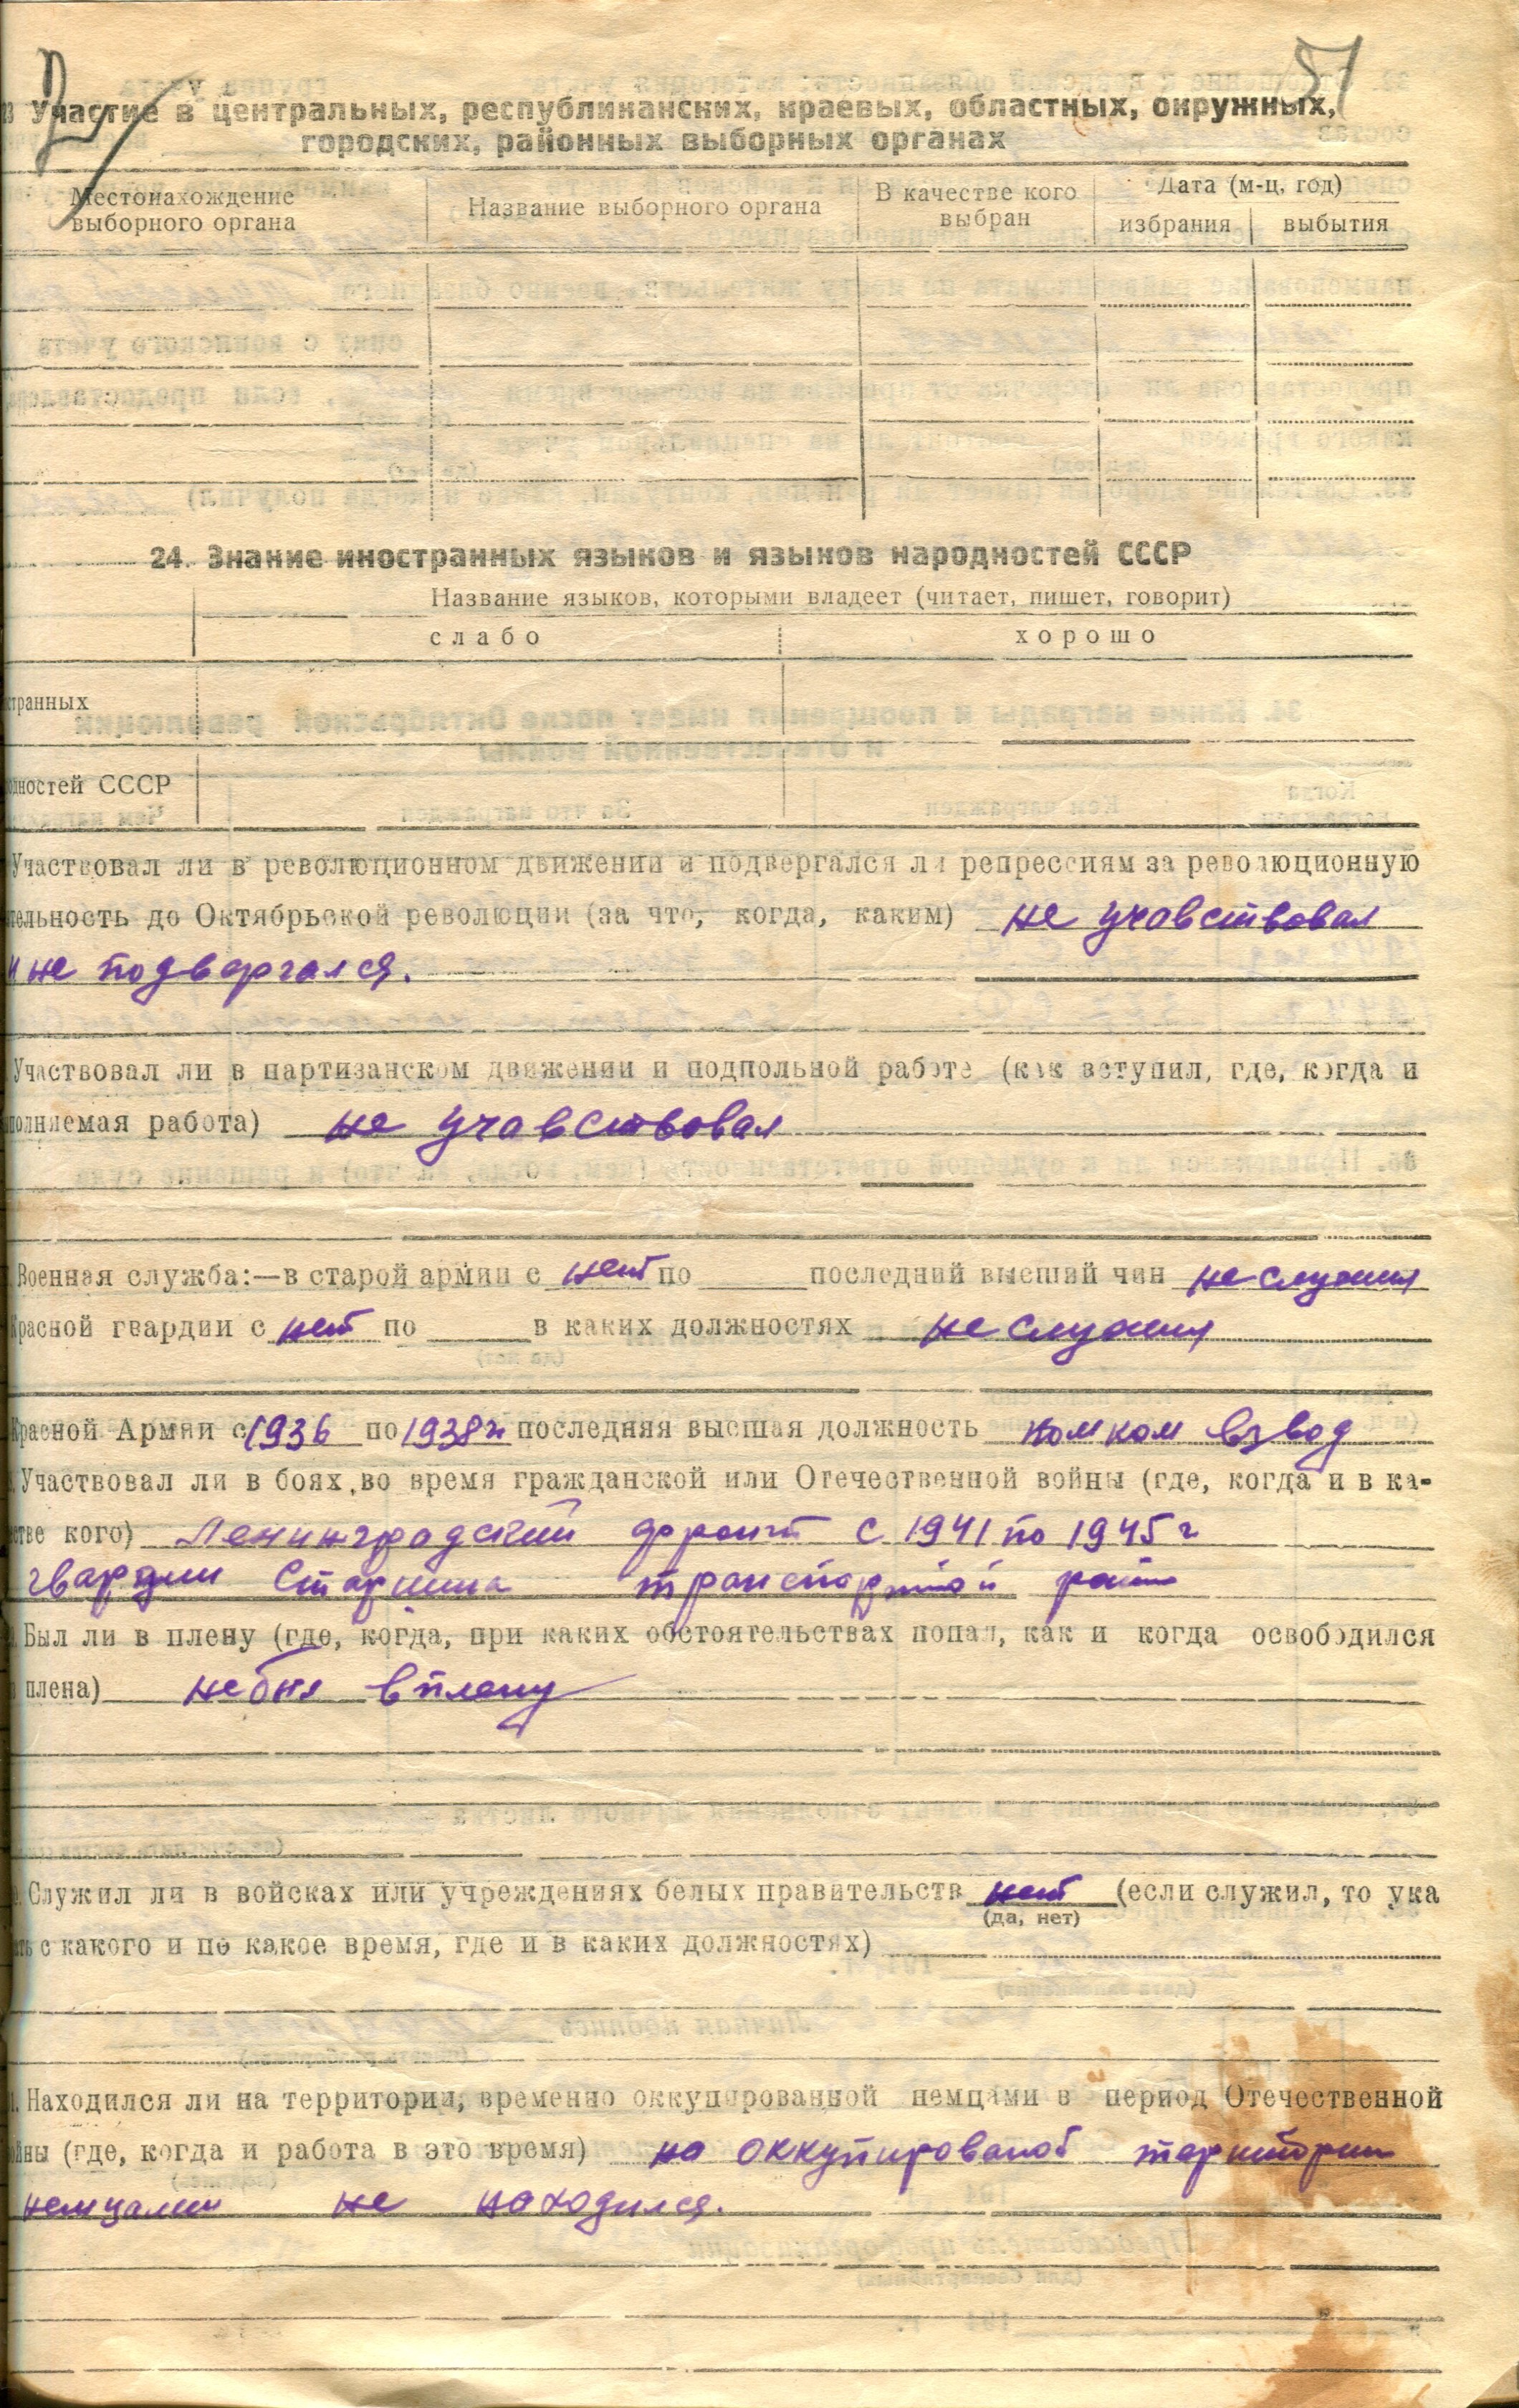 51
23 Участие в центральных, республиканских, краевых, областных, окружных,
городских, районных выборных органах
Местонахождение выборного органа
Название выборного органа
В качестве кого выбран
Дата (м-ц, год)
избрания
выбытия
24. Знание иностранных языков и языков народностей СССР
Название языков, которыми владеет (читает, пишет, говорит)
слабо
хорошо
странных
одностей СССР
Участвовал ли в революционном движении и подвергался ли репрессиям за революционную
тельность до Октябрьской революции (за что, когда, каким) не учавствовал
и не подвергался.
Участвовал ли в партизанском движении и подпольной работе (как вступил, где, когда и
полняемая работа) не учавствовал
Военная служба:—в старой армии с нет по последний высший чин не служил
Красной гвардии с нет по в каких должностях не служил
Красной Армии с 1936 по 1938 г последняя высшая должность пом ком взвод
Участвовал ли в боях во время гражданской или Отечественной войны (где, когда и в ка-
стве кого) Ленинградский фронт с 1941 по 1945 г
гвардии Старшина транспортной
Был ли в плену (где, когда, при каких обстоятельствах попал, как и когда освободился
плена) не был в плену
Служил ли в войсках или учреждениях белых правительств нет (если служил, то ука
(да, нет)
ать с какого и по какое время, где и в каких должностях)
1. Находился ли на территории, временно оккупированной немцами в период Отечественной
ойны (где, когда и работа в это время) на оккупированой территории
немцами не находился.